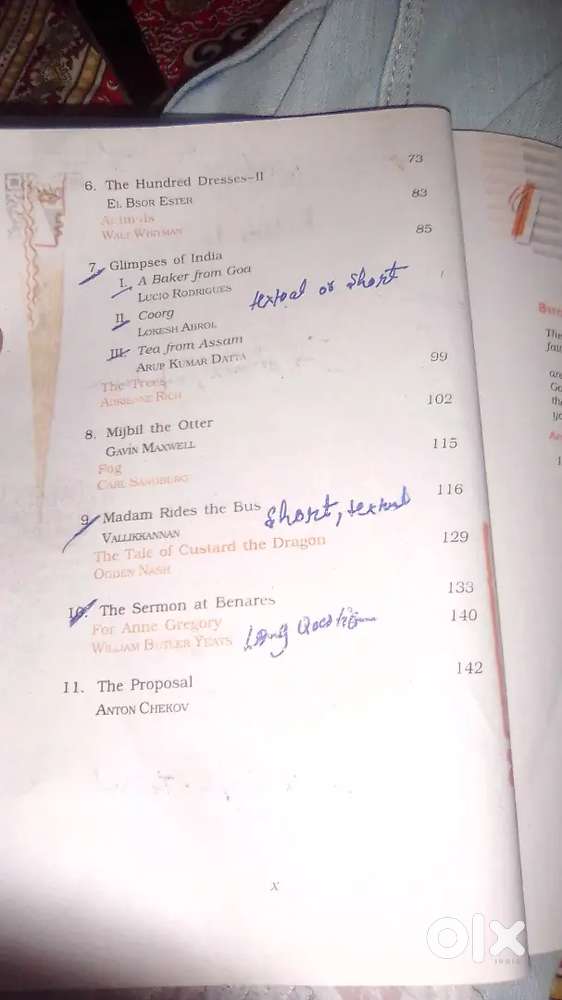 73
6. The Hundred Dresses–II
EL BSOR ESTER 83
Animals
WALT WHITMAN 85
7. Glimpses of India
I. A Baker from Goa
LUCIO RODRIGUES textual or short
II. Coorg
LOKESH ABROL
III. Tea from Assam
ARUP KUMAR DATTA 99
The Trees
ADRIENNE RICH 102
8. Mijbil the Otter
GAVIN MAXWELL 115
Fog
CARL SANDBURG 116
9. Madam Rides the Bus short, textual
VALLIKKANNAN 129
The Tale of Custard the Dragon
OGDEN NASH
10. The Sermon at Benares 133
For Anne Gregory 140
WILLIAM BUTLER YEATS Long Question
11. The Proposal 142
ANTON CHEKOV
x
olx
INDIA